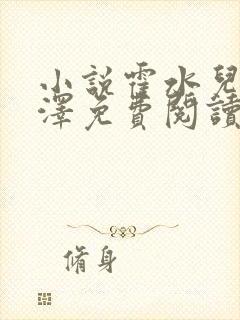 小説霍水兒
澤免費閱讀
脩身